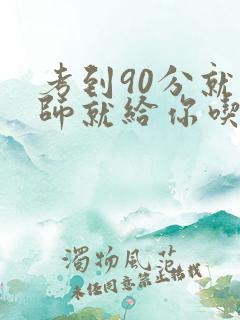 考到90分就
師就給你喫
濁物風范
未任同意禁止轉載